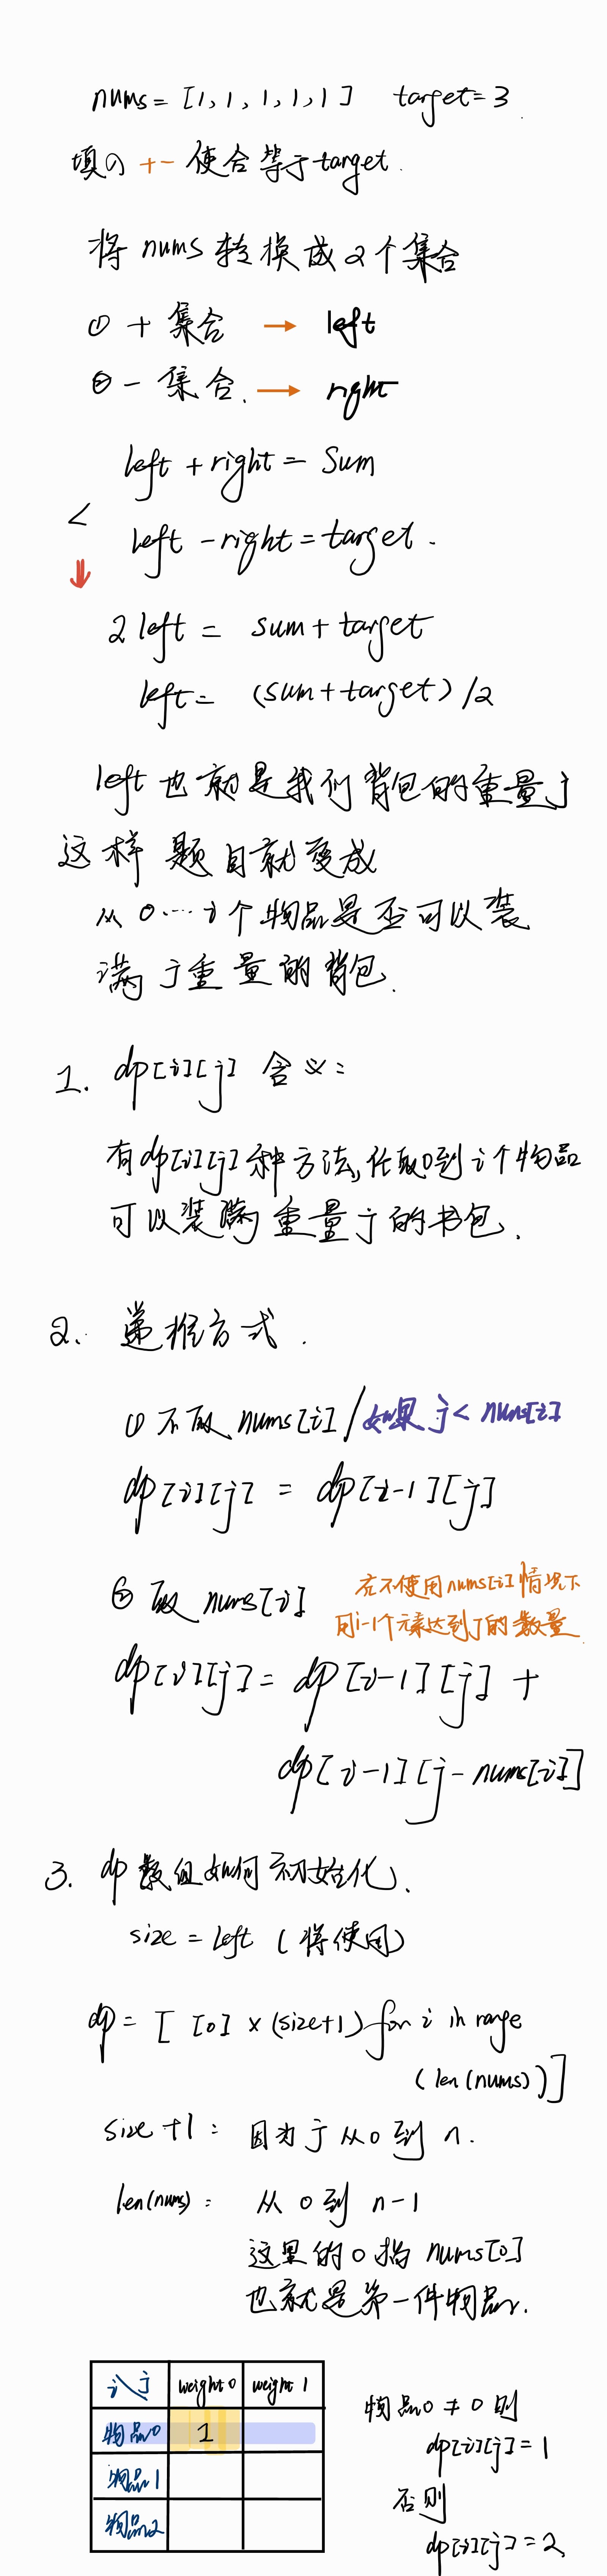 nums = [1, 1, 1, 1, 1] target = 3.
填入 +- 使合等于target.
将 nums 转换成 2个集合
① + 集合 → left
② - 集合. → right
left + right = Sum
<
left - right = target.
⇓
2 left = sum + target
left = (sum + target) / 2
left 也就是我们背包的重量 j
这样 题目就变成
从 0 ... i 个 物品是否可以装
满 j 重量的背包.
1. dp[i][j] 含义:
有 dp[i][j] 种方法, 任取0到 i 个物品
可以装满 重量 j 的书包.
2. 递推方式.
① 不取 nums[i] / 如果 j < nums[i]
dp[i][j] = dp[i-1][j]
② 取 nums[i]
在不使用nums[i]情况下
用i-1个元素达到j的数量
dp[i][j] = dp[i-1][j] +
dp[i-1][j - nums[i]]
3. dp 数组如何初始化.
size = left (将使用)
dp = [ [0] × (size+1) for i in range
(len(nums))]
size +1 : 因为 j 从 0 到 n.
len(nums) : 从 0 到 n-1
这里的 0 指 nums[0]
也就是第一件物品.
i\j weight 0 weight 1
物品0 1
物品1
物品2
物品0 ≠ 0 则
dp[i][j] = 1
否则
dp[i][j] = 2